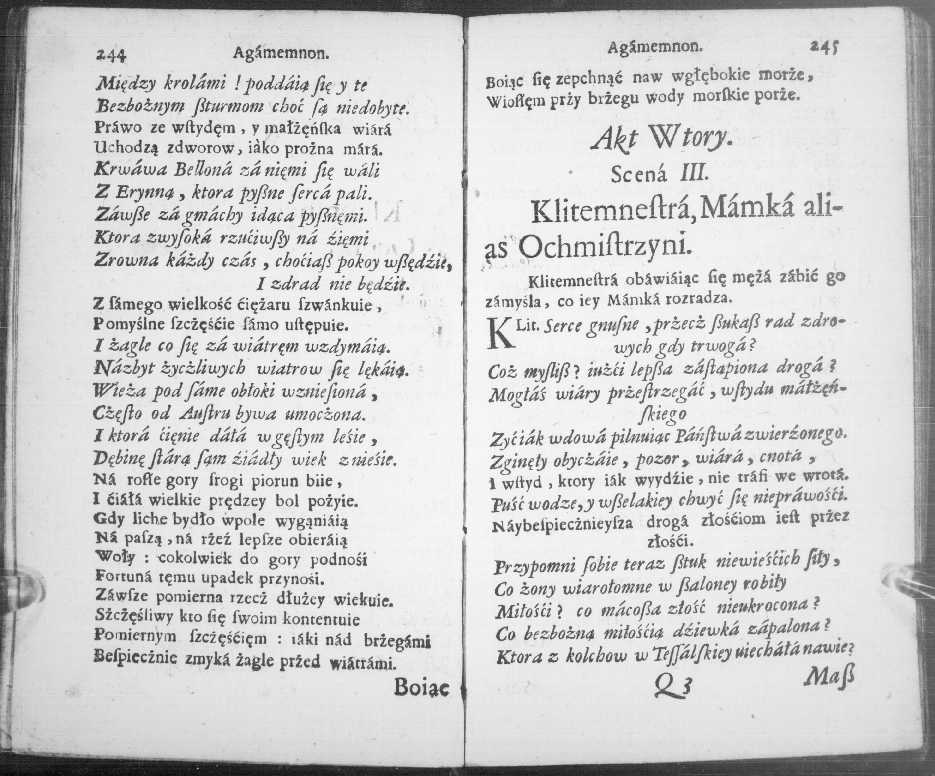 244 Agámemnon.
Między krolámi ! poddáią ſię y te
Bezbożnym ßturmom choć ſą niedobyte.
Práwo ze wſtydęm, y małżęńſka wiárá
Uchodzą zdworow, iáko prożna márá.
Krwáwa Belloná zá nięmi ſię wáli
Z Erynną, ktora pyßne ſercá pali.
Záwße zá gmáchy idaca pyßnęmi.
Ktora zwyſoká rzućiwßy ná źięmi
Zrowna káżdy czás, choćiaß pokoy wßędźie,
I zdrad nie będźie.
Z ſámego wielkość ćiężaru ſzwánkuie,
Pomyślne ſzcżęśćie ſámo uſtępuie.
I żagle co ſię zá wiátręm wzdymáią.
Názbyt życżliwych wiatrow ſię lękáią.
Wieża pod ſáme obłoki wznieſioná,
Cżęſto od Auſtru bywa umocżona.
I ktorá ćięnie dáłá w gęſtym leśie,
Dębinę ſtárą ſąm źiádły wiek znieśie.
Ná roſłe gory ſrogi piorun biie,
I ćiáłá wielkie prędzey bol pożyie.
Gdy liche bydło wpole wygąniáią
Ná paſzą, ná rżeź lepſze obieráią
Woły : cokolwiek do gory podnośi
Fortuná tęmu upadek przynośi.
Záwſze pomierna rzecż dłużey wiekuie.
Sżcżęśliwy kto ſię ſwoim kontentuie
Pomiernym ſzcżęśćięm : iáki nád brżegámi
Beſpiecżnie zmyká żagle prżed wiátrámi.
Boiąc
Agámemnon. 245
Boiąc ſię zepchnąć naw wgłębokie morże,
Wioſłęm prży brżegu wody morſkie porże.
Akt Wtory.
Scená III.
Klitemneſtrá, Mámká ali-
as Ochmiſtrzyni.
Klitemneſtrá obáwiáiąc ſię mężá zábić go
zámyśla, co iey Mámká rozradza.
KLit. Serce gnuſne, przecż ßukaß rad zdro-
wych gdy trwogá?
Coż myſliß? iużći lepßa záſtąpiona drogá?
Mogłáś wiáry prżeſtrzegáć, wſtydu máłżęń-
ſkiego
Zyćiák wdowá pilnuiąc Páńſtwá zwierżonego.
Zginęły obycżáie, pozor, wiárá, cnotá,
I wſtyd, ktory iák wyydźie, nie tráfi we wrotá.
Puść wodze, y wßelakiey chwyć ſię niepráwośći.
Náybeſpiecżnieyſza drogá złośćiom ieſt prżez
złośći.
Przypomni ſobie teraz ßtuk niewieśćich ſiły,
Co żony wiarołomne w ßaloney robiły
Miłośći? co mácoßa złość nieukrocona?
Co bezbożną miłośćią dźiewká zápalona?
Ktora z kolchow w Teſſálſkiey uiecháłá nawie?
Q3 Maß